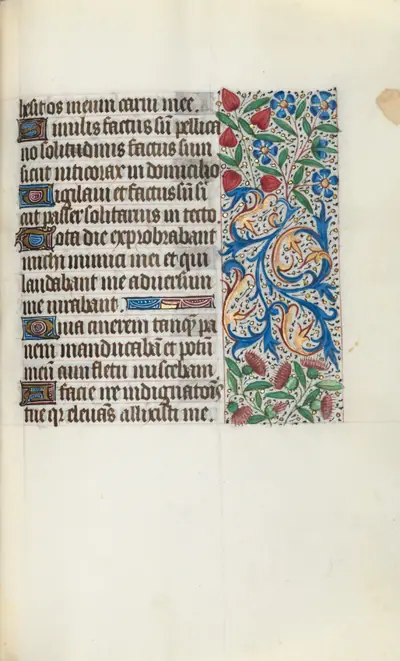 hesit os meum carni mee.
Similis factus sū pellica
no solitudinis factus sum
sicut niticorax in domicilio
Vigilavi et factus sū si
cut passer solitarius in tecto.
Tota die exprobrabant
michi inimici mei et qui
laudabant me adversum
me iurabant.
Quia cinerem tanq̄ pa
nem manducabā et potū
meū cum fletu miscebam
A facie ire indignatiōis
tue qr elevās allixisti me.